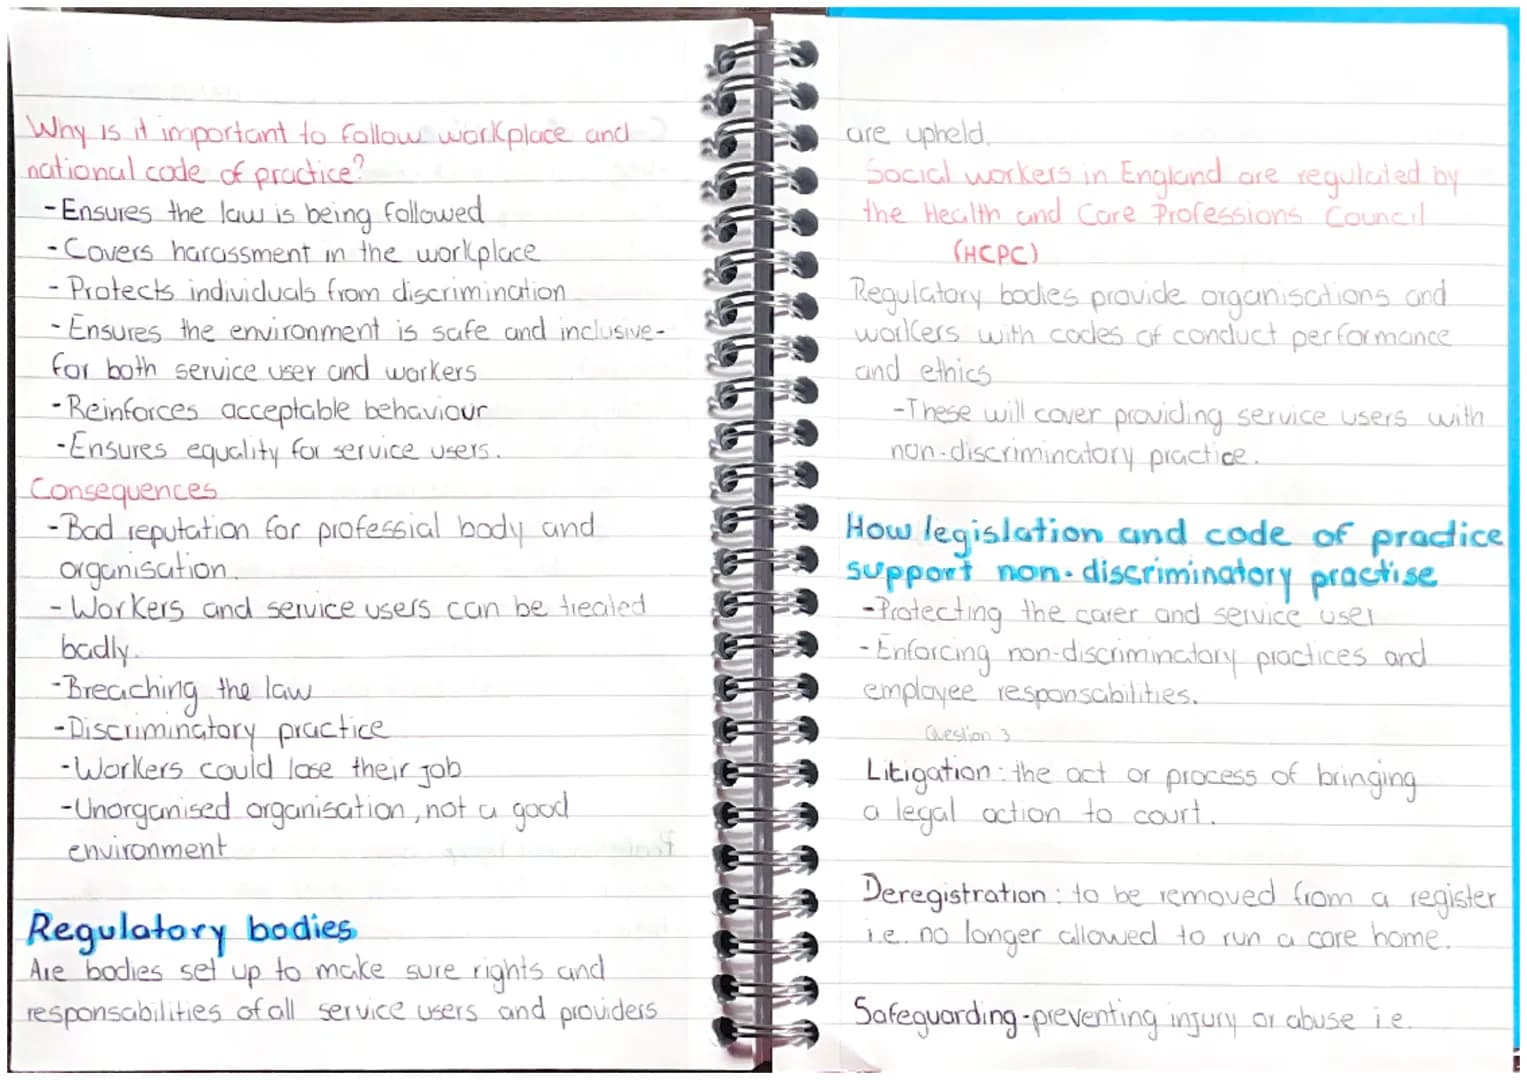 Why is it important to follow workplace and
national code of practice?
-Ensures the law is being followed
-Covers harassment in the workplace
-Protects individuals from discrimination
-Ensures the environment is safe and inclusive-
for both service user and workers
-Reinforces acceptable behaviour
-Ensures equality for service users.
Consequences
-Bad reputation for professial body and
organisation.
-Workers and service users can be treated
badly.
-Breaching the law
-Discriminatory practice
-Workers could lose their job
-Unorganised organisation, not a good
environment
Regulatory bodies
Are bodies set up to make sure rights and
responsabilities of all service users and providers
are upheld.
Social workers in England are regulated by
the Health and Care Professions Council
(HCPC)
Regulatory bodies provide organisations and
workers with codes of conduct performance
and ethics
-These will cover providing service users with
non-discriminatory practice.
How legislation and code of practice
support non-discriminatory practise
-Protecting the carer and service user
-Enforcing non-discriminatory practices and
employee responsabilities.
Question 3
Litigation: the act or process of bringing
a legal action to court.
Deregistration: to be removed from a register
i.e. no longer allowed to run a care home.
Safeguarding-preventing injury or abuse i.e.